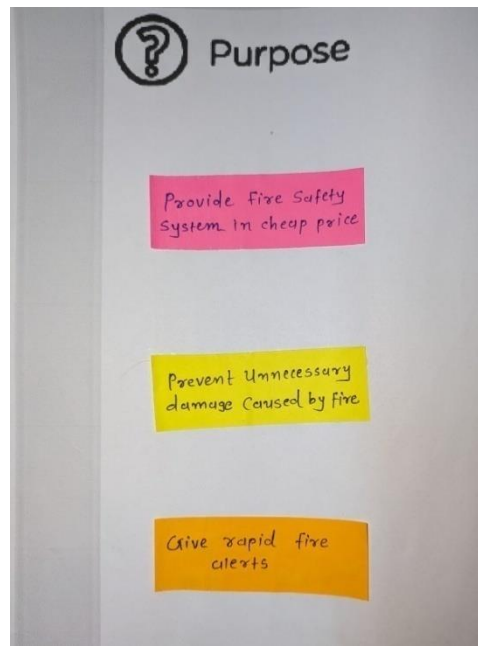 Purpose
Provide Fire Safety
System In cheap price
Prevent Unnecessary
damage Caused by Fire
Give rapid fire
alerts